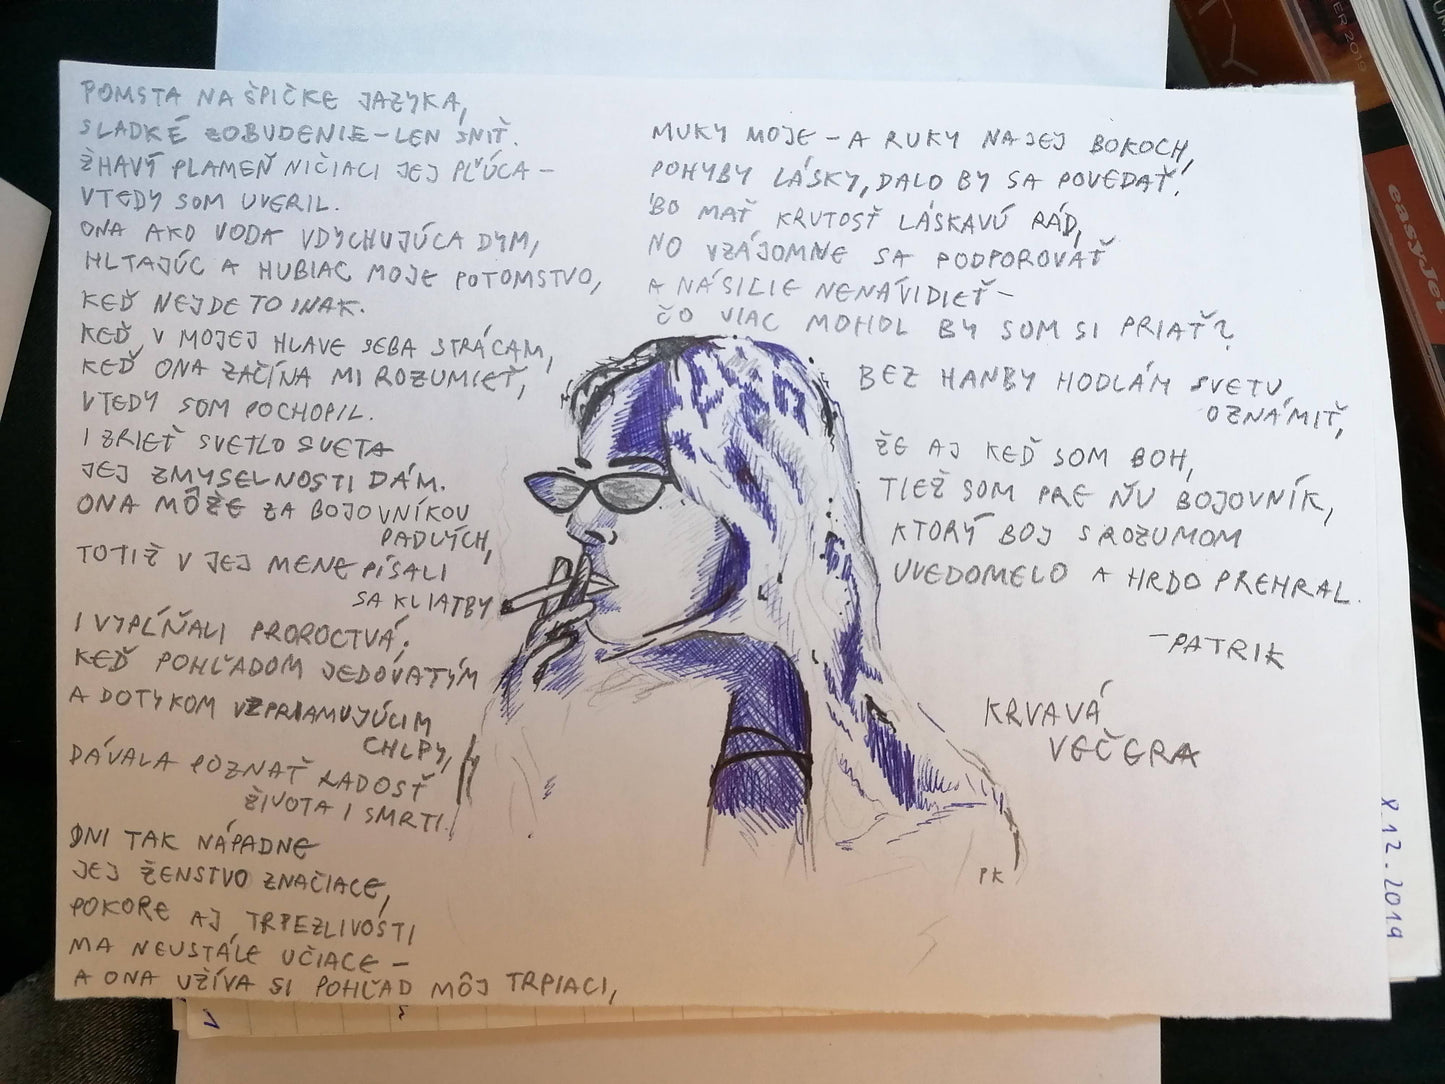 POMSTA NA ŠPIČKE JAZYKA,
SLADKÉ ZOBUDENIE – LEN SNIŤ.
ŽHAVÝ PLAMEŇ NIČIACI JEJ PĽÚCA –
VTEDY SOM UVERIL.
ONA AKO VODA VDYCHUJÚCA DYM,
HLTAJÚC A HUBIAC MOJE POTOMSTVO,
KEĎ NEJDE TO INAK.
KEĎ V MOJEJ HLAVE SEBA STRÁCAM,
KEĎ ONA ZAČÍNA MI ROZUMIEŤ,
VTEDY SOM POCHOPIL.
I ZRIEŤ SVETLO SVETA
JEJ ZMYSELNOSTI DÁM.
ONA MÔŽE ZA BOJOVNÍKOV
PADLÝCH,
TOTIŽ V JEJ MENE PÍSALI
SA KLIATBY
I VYPĹŇALI PROROCTVÁ,
KEĎ POHĽADOM JEDOVATÝM
A DOTYKOM VZPRIAMUJÚCIM
CHLPY,
DÁVALA POZNAŤ RADOSŤ
ŽIVOTA I SMRTI.
DNI TAK NÁPADNE
JEJ ŽENSTVO ZNAČIACE,
POKORE AJ TRPEZLIVOSTI
MA NEUSTÁLE UČIACE –
A ONA UŽÍVA SI POHĽAD MÔJ TRPIACI,
MUKY MOJE – A RUKY NA JEJ BOKOCH,
POHYBY LÁSKY, DALO BY SA POVEDAŤ.
BO MAŤ KRUTOSŤ LÁSKAVÚ RÁD,
NO VZÁJOMNE SA PODPOROVAŤ
A NÁSILIE NENÁVIDIEŤ –
ČO VIAC MOHOL BY SOM SI PRIAŤ?
BEZ HANBY HODLÁM SVETU
OZNÁMIŤ,
ŽE AJ KEĎ SOM BOH,
TIEŽ SOM PRE ŇU BOJOVNÍK,
KTORÝ BOJ S ROZUMOM
UVEDOMELO A HRDO PREHRAL.
– PATRIK
KRVAVÁ
VEČERA
PK
8.12.2019
easyJet
ER 2019